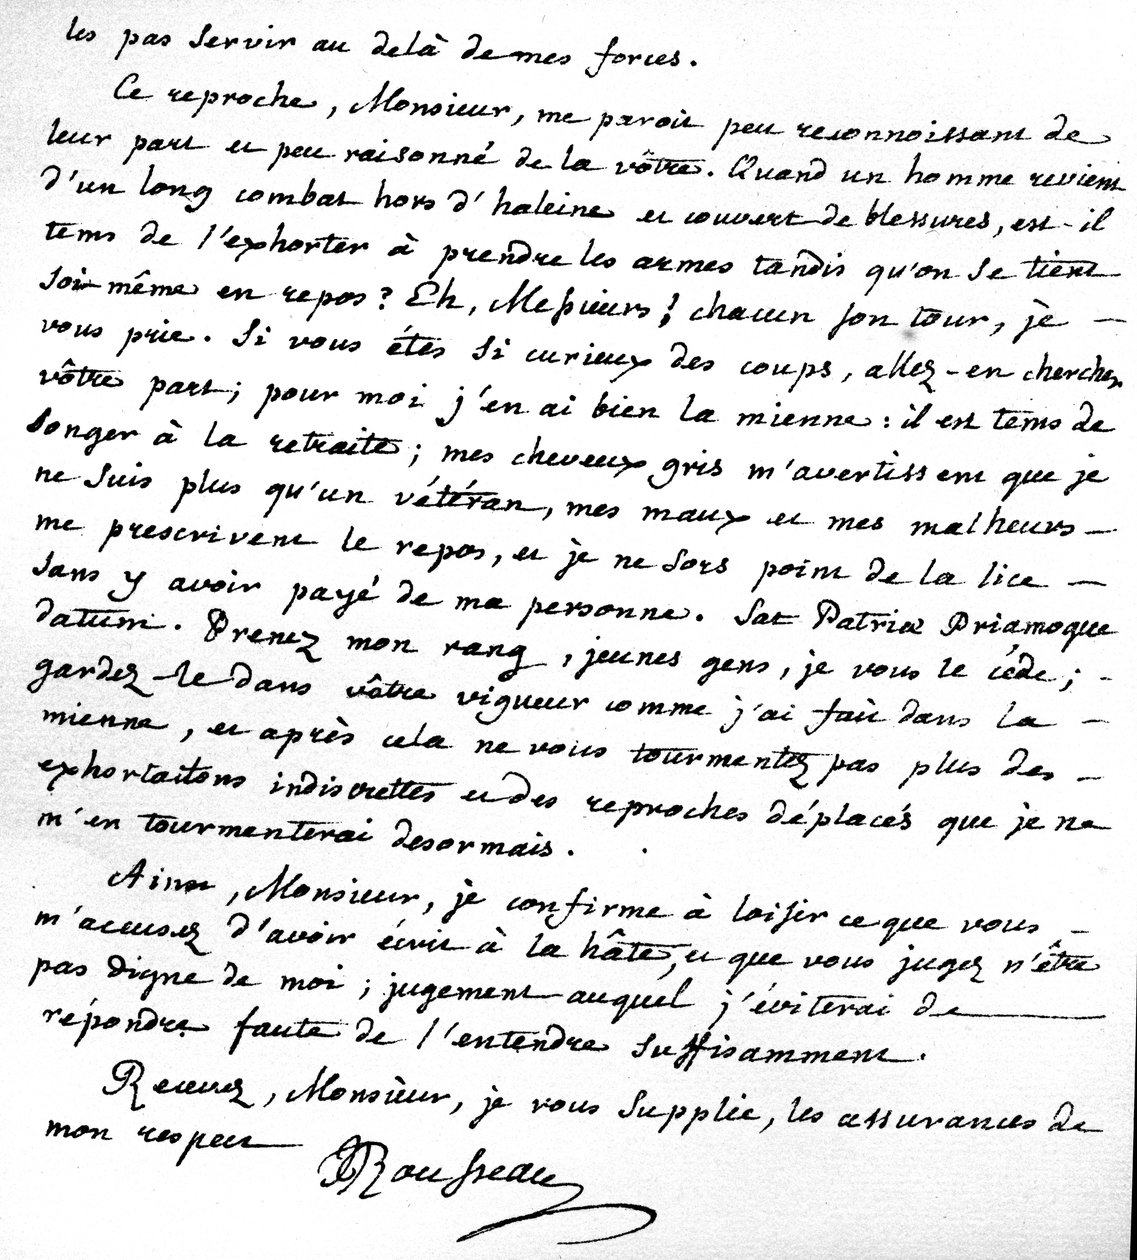 les pas servir au delà de mes forces.
Ce reproche, Monsieur, me paroit peu reconnoissant de
leur part et peu raisonné de la vôtre. Quand un homme revient
d'un long combat hors d'haleine et couvert de blessures, est-il
tems de l'exhorter à prendre les armes tandis qu'on se tient
soi-même en repos? Eh, Messieurs! chacun son tour, je —
vous prie. Si vous étes si curieux des coups, allez-en chercher
vôtre part; pour moi j'en ai bien la mienne: il est tems de
songer à la retraite; mes cheveux gris m'avertissent que je
ne suis plus qu'un vétéran, mes maux et mes malheurs —
me prescrivent le repos, et je ne sors point de la lice —
sans y avoir payé de ma personne. Sat Patriæ Priamoque
datum. Prenez mon rang, jeunes gens, je vous le cède; -
gardez-le dans vôtre vigueur comme j'ai fait dans la —
mienne, et après cela ne vous tourmentez pas plus des —
exhortations indiscrettes et des reproches déplacés que je ne
m'en tourmenterai desormais.
Ainsi, Monsieur, je confirme à loisir ce que vous —
m'accusez d'avoir écrit à la hâte, et que vous jugez n'être
pas digne de moi; jugement auquel j'éviterai de —
répondre faute de l'entendre suffisamment.
Recevez, Monsieur, je vous supplie, les assurances de
mon respect
JJRousseau